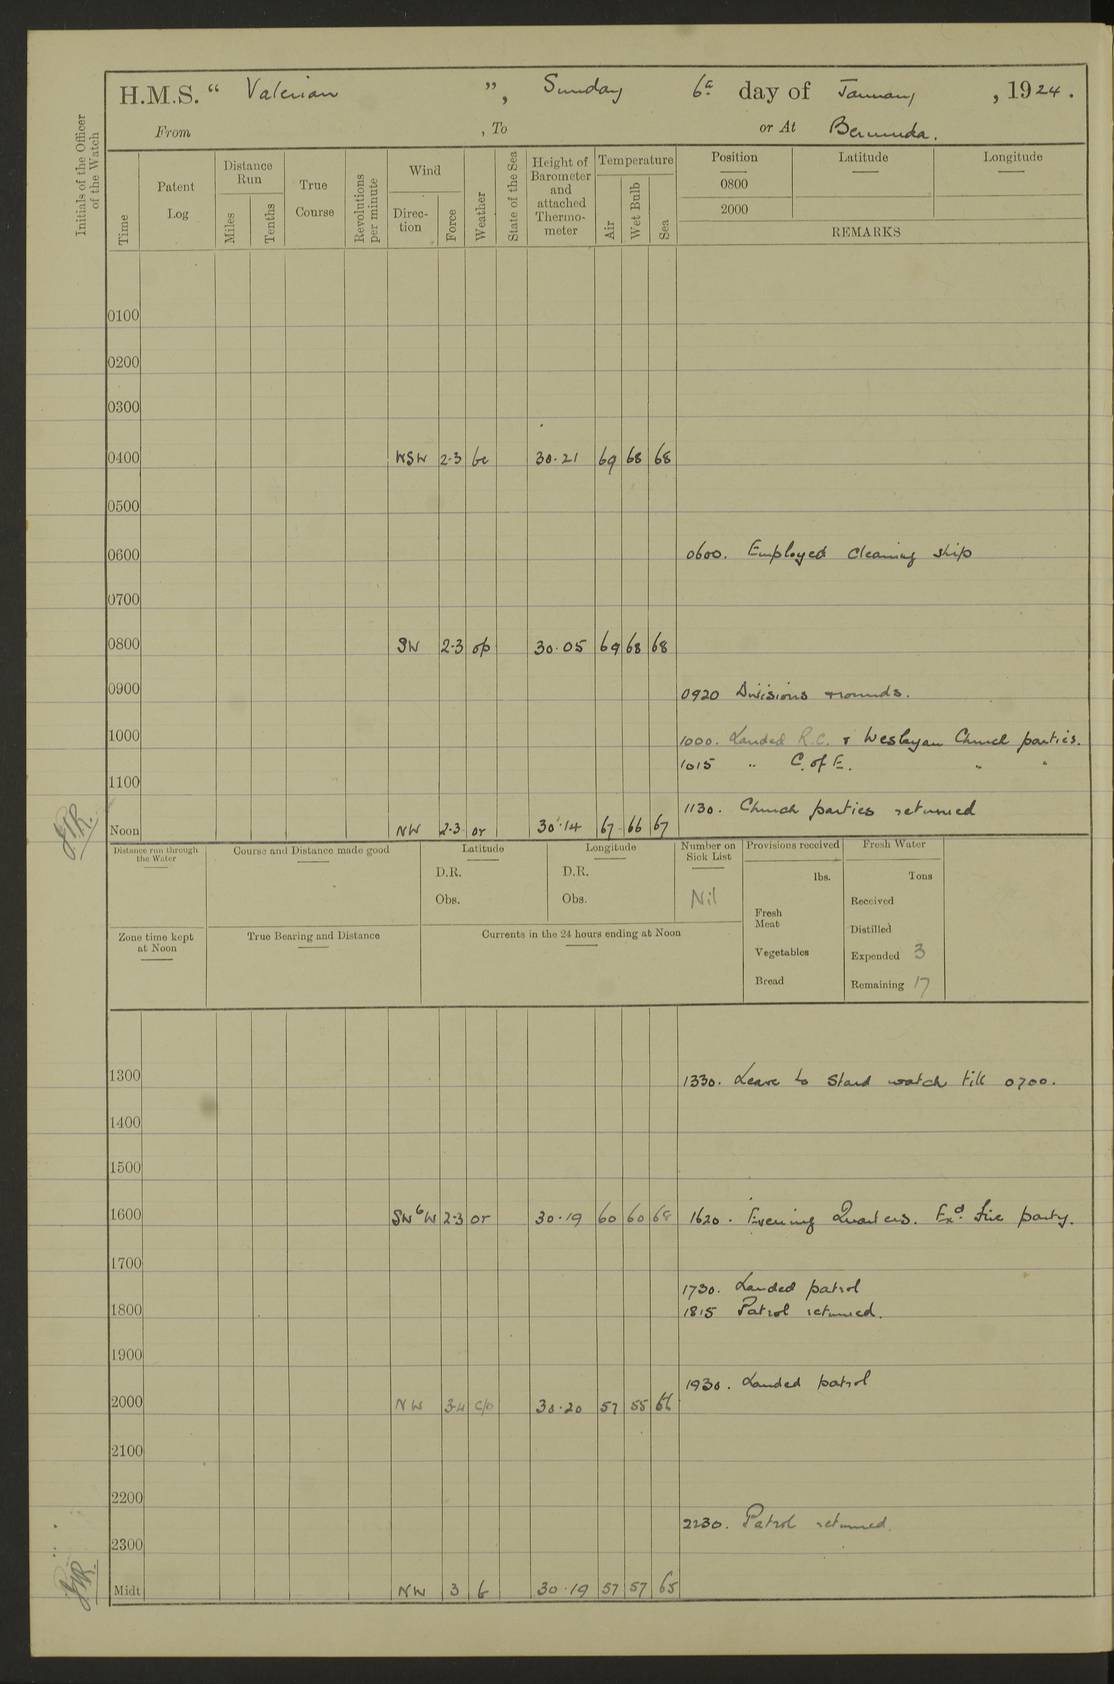 H.M.S. “ Valerian ”, Sunday 6th day of January, 1924.
From , To or At Bermuda.
Initials of the Officer of the Watch
Time
Patent Log
Distance Run
Miles
Tenths
True Course
Revolutions per minute
Wind
Direc-tion
Force
Weather
State of the Sea
Height of Barometer and attached Thermo-meter
Temperature
Air
Wet Bulb
Sea
Position
0800
2000
Latitude
Longitude
REMARKS
0100
0200
0300
0400 WSW 2-3 bc 30.21 69 68 68
0500
0600 0600. Employed cleaning ship
0700
0800 SW 2-3 op 30.05 69 68 68
0900 0920 Divisions & rounds.
1000 1000. Landed R.C. & Wesleyan Church parties.
1015 „ C. of E. „ „
1100
1130. Church parties returned
Noon NW 2-3 or 30.14 67 66 67
Distance run through the Water
Course and Distance made good
Latitude
D.R.
Obs.
Longitude
D.R.
Obs.
Number on Sick List
Nil
Provisions received
lbs.
Fresh Meat
Vegetables
Bread
Fresh Water
Tons
Received
Distilled
Expended 3
Remaining 17
Zone time kept at Noon
True Bearing and Distance
Currents in the 24 hours ending at Noon
1300 1330. Leave to Stard watch till 0700.
1400
1500
1600 SWbW 2-3 or 30.19 60 60 68 1620. Evening Quarters. Exd. fire party.
1700
1730. Landed patrol
1800 1815 Patrol returned.
1900
1930. Landed patrol
2000 NW 3-4 c/o 30.20 57 55 66
2100
2200
2230. Patrol returned.
2300
Midt NW 3 b 30.19 57 57 65